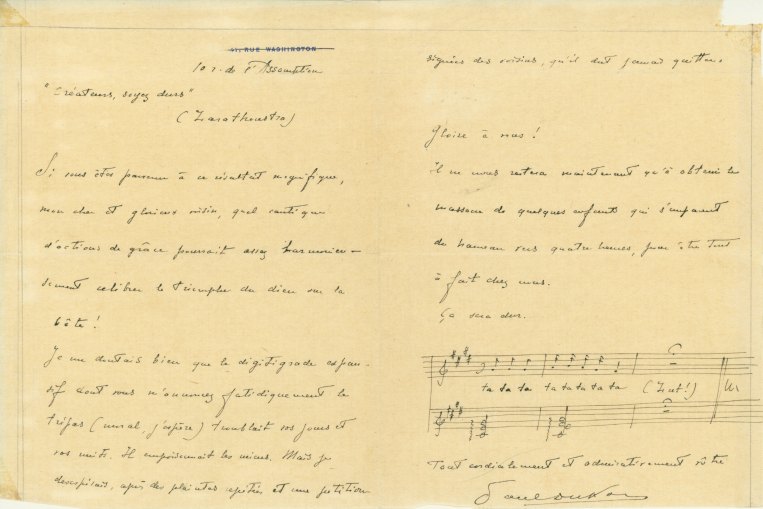 RUE WASHINGTON
10 r. de l'Assomption
"Créateurs, soyez durs"
(Zarathoustra)
Si vous êtes parvenu à ce résultat magnifique,
mon cher et glorieux voisin, quel cantique
d'actions de grâce pourrait assez harmonieu-
sement célébrer le triomphe du dieu sur la
bête !
Je me doutais bien que le digitigrade expan-
sif dont vous m'annoncez fatidiquement le
trépas (moral, j'espère) troublait vos jours et
vos nuits. Il empoisonnait les miens. Mais je
désespérais, après des plaintes et une pétition
signées des voisins, qu'il dût jamais quitter.
Gloire à vous !
Il ne nous restera maintenant qu'à obtenir le
massacre de quelques enfants qui s'emparent
du hameau vers quatre heures, pour être tout
à fait chez nous.
Ça sera dur.
ta ta ta ta ta ta ta ta (Zut!)
Tout cordialement et admirativement vôtre
Paul Dukas